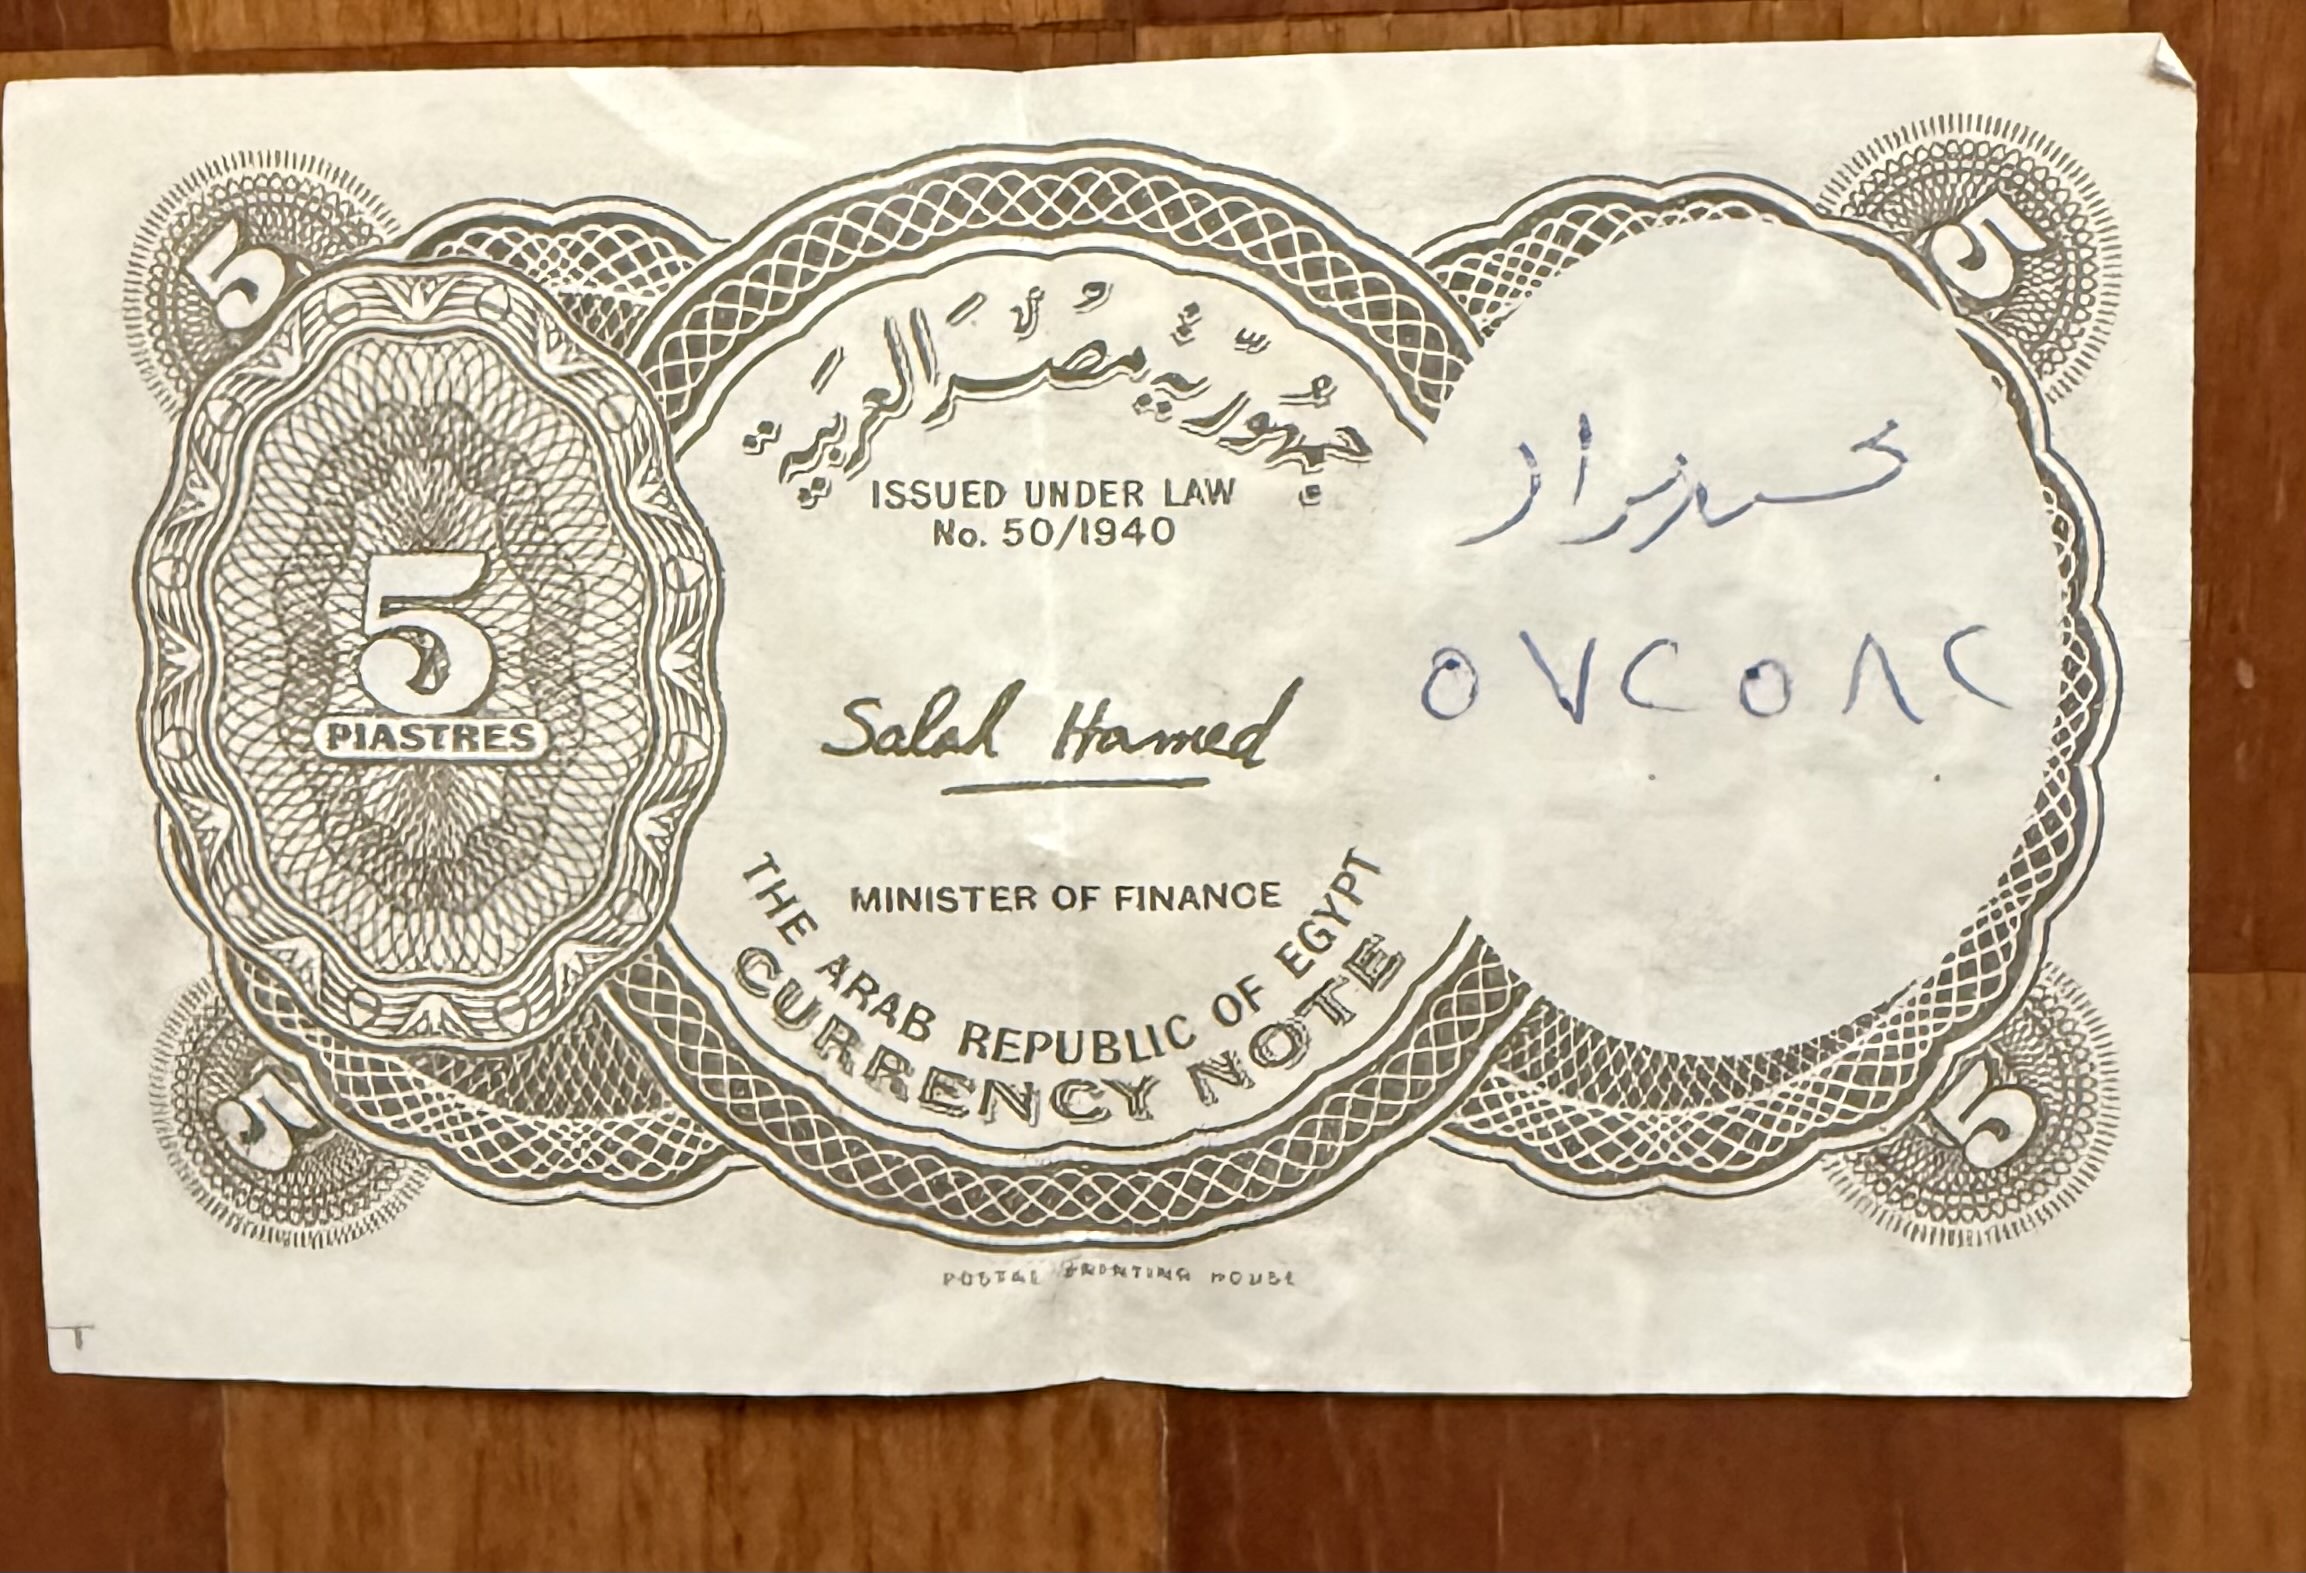 5
5
جُمهُوريّة مُصَر العَربَية
ISSUED UNDER LAW
No. 50/1940
5
PIASTRES
Salah Hamed
MINISTER OF FINANCE
THE ARAB REPUBLIC OF EGYPT
CURRENCY NOTE
٥٧٢٥٨٢
5
5
POSTAL PRINTING HOUSE